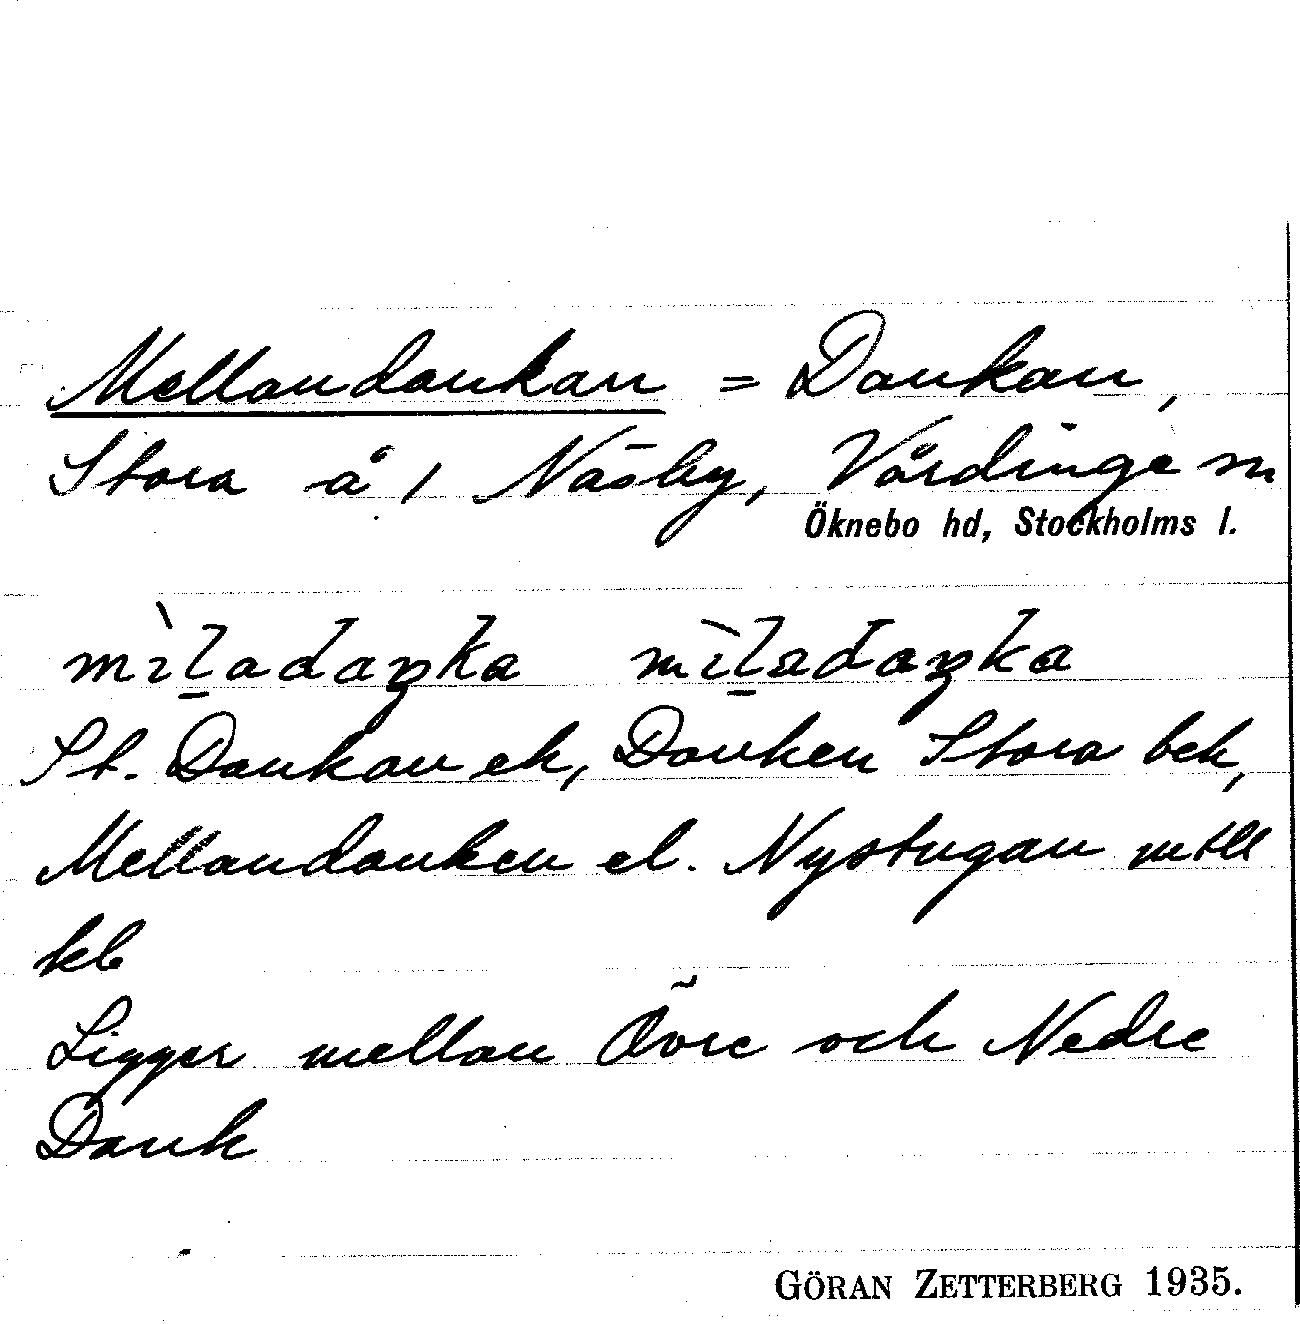 Mellandankan = Dankan,
Stora å / Näsby, Vårdinge sn
Öknebo hd, Stockholms l.
St. Dankan ek, Danken Stora bek,
Mellandanken el. Nystugan mtll
kb
Ligger mellan Övre och Nedre
Dank
GÖRAN ZETTERBERG 1935.